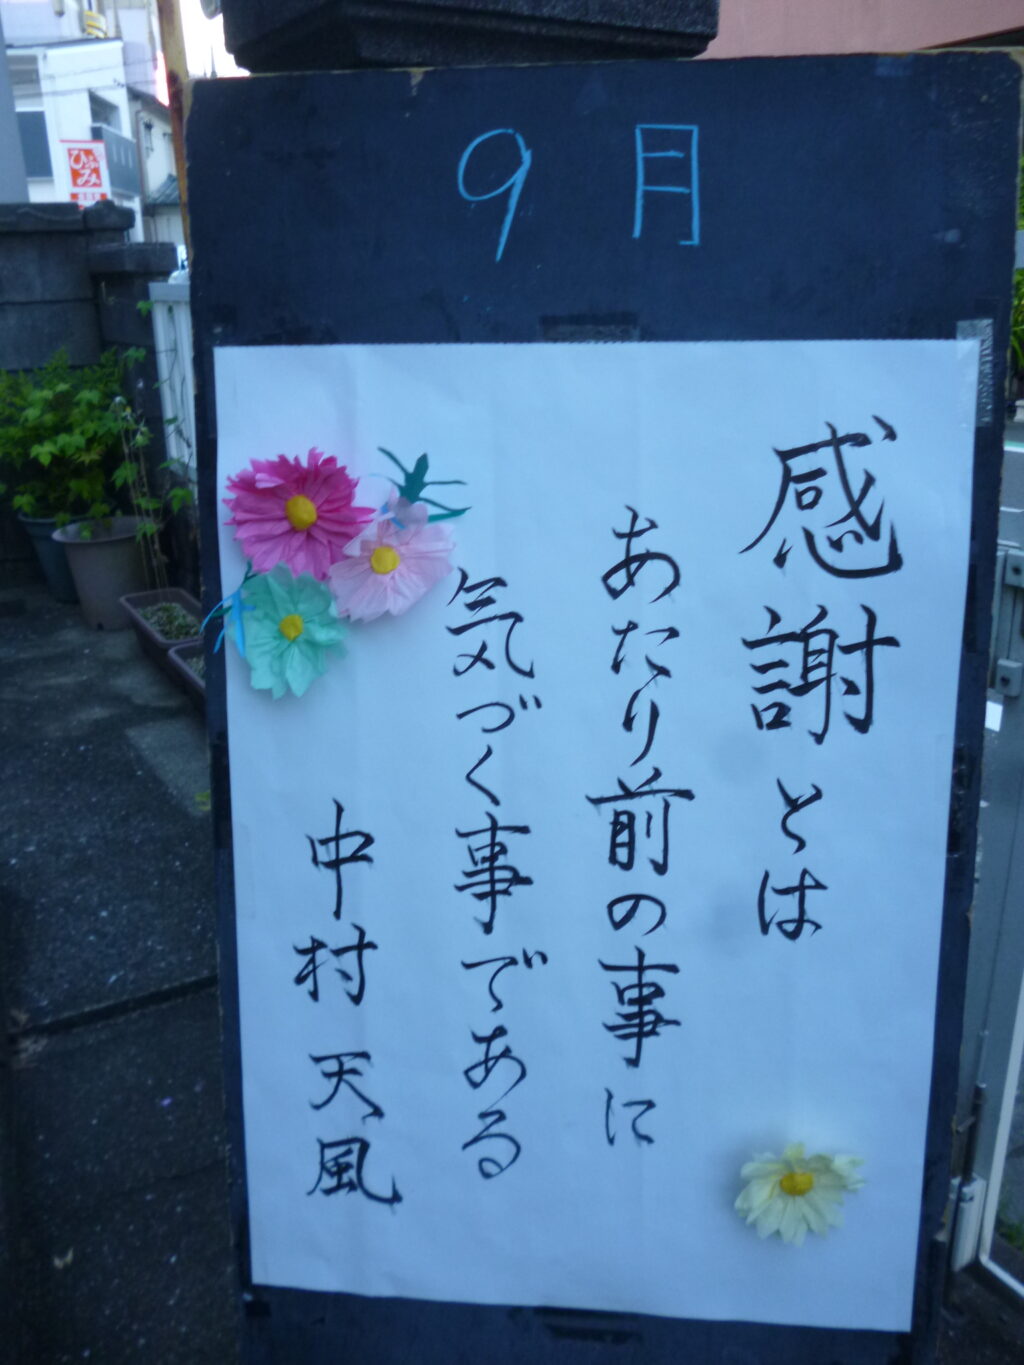 9月
感謝とは
あたり前の事に
気づく事である
中村天風